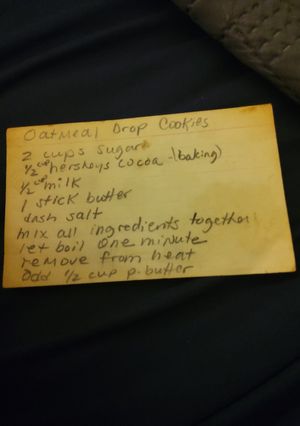 Oatmeal Drop Cookies
2 cups sugar
1/2 cup hersheys cocoa - (baking)
1/2 cup milk
1 stick butter
dash salt
mix all ingredients together
let boil one minute
remove from heat
Add 1/2 cup p. butter